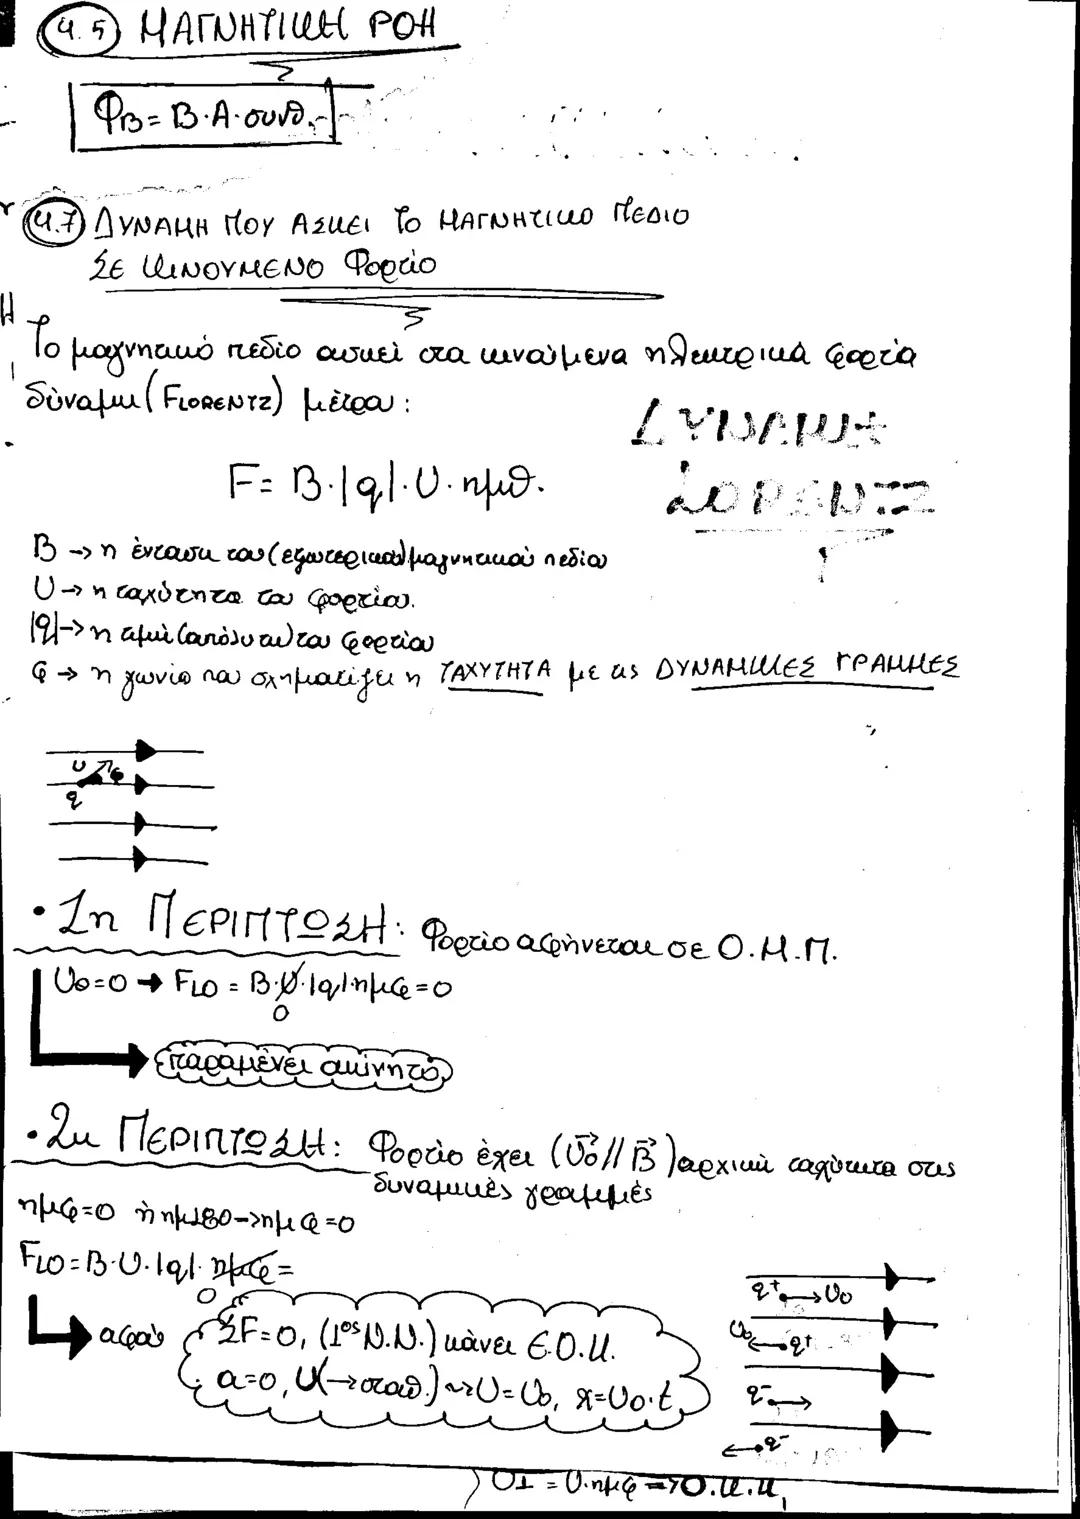 4.5 ΜΑΓΝΗΤΙΚΗ ΡΟΗ
Φ_B = B·A·συνθ.
4.7 ΔΥΝΑΜΗ ΠΟΥ ΑΣΚΕΙ ΤΟ ΜΑΓΝΗΤΙΚΟ ΠΕΔΙΟ
ΣΕ ΚΙΝΟΥΜΕΝΟ Φορτίο
Το μαγνητικό πεδίο ασκεί στα κινούμενα ηλεκτρικά φορτία
δύναμη (FLORENTZ) μέτρου:
ΔΥΝΑΜΗ
LORENTZ
F = B·|q|·υ·ημθ.
B → η ένταση του (εξωτερικού) μαγνητικού πεδίου
υ → η ταχύτητα του φορτίου.
|q| → η τιμή (απόλυτη) του φορτίου
φ → η γωνία που σχηματίζει η ΤΑΧΥΤΗΤΑ με τις ΔΥΝΑΜΙΚΕΣ ΓΡΑΜΜΕΣ
υ φ
q
• 1η ΠΕΡΙΠΤΩΣΗ: Φορτίο αφήνεται σε Ο.Μ.Π.
υ₀=0 → F_LO = B·υ·|q|·ημφ=0
0
παραμένει ακίνητο
• 2η ΠΕΡΙΠΤΩΣΗ: Φορτίο έχει (υ₀ // B) αρχική ταχύτητα στις
δυναμικές γραμμές
ημφ=0 ή ημ180→ημφ=0
F_LO = B·υ·|q|·ημφ =
0
αφού ΣF=0, (1ος Ν.Ν.) κάνει Ε.Ο.Κ.
a=0, υ(→σταθ.) ~> υ=υ₀, x=υ₀·t
q+ υ₀
υ₀ q+
q-
q-
υ⊥ = υ·ημφ → Ο.Κ.Κ,